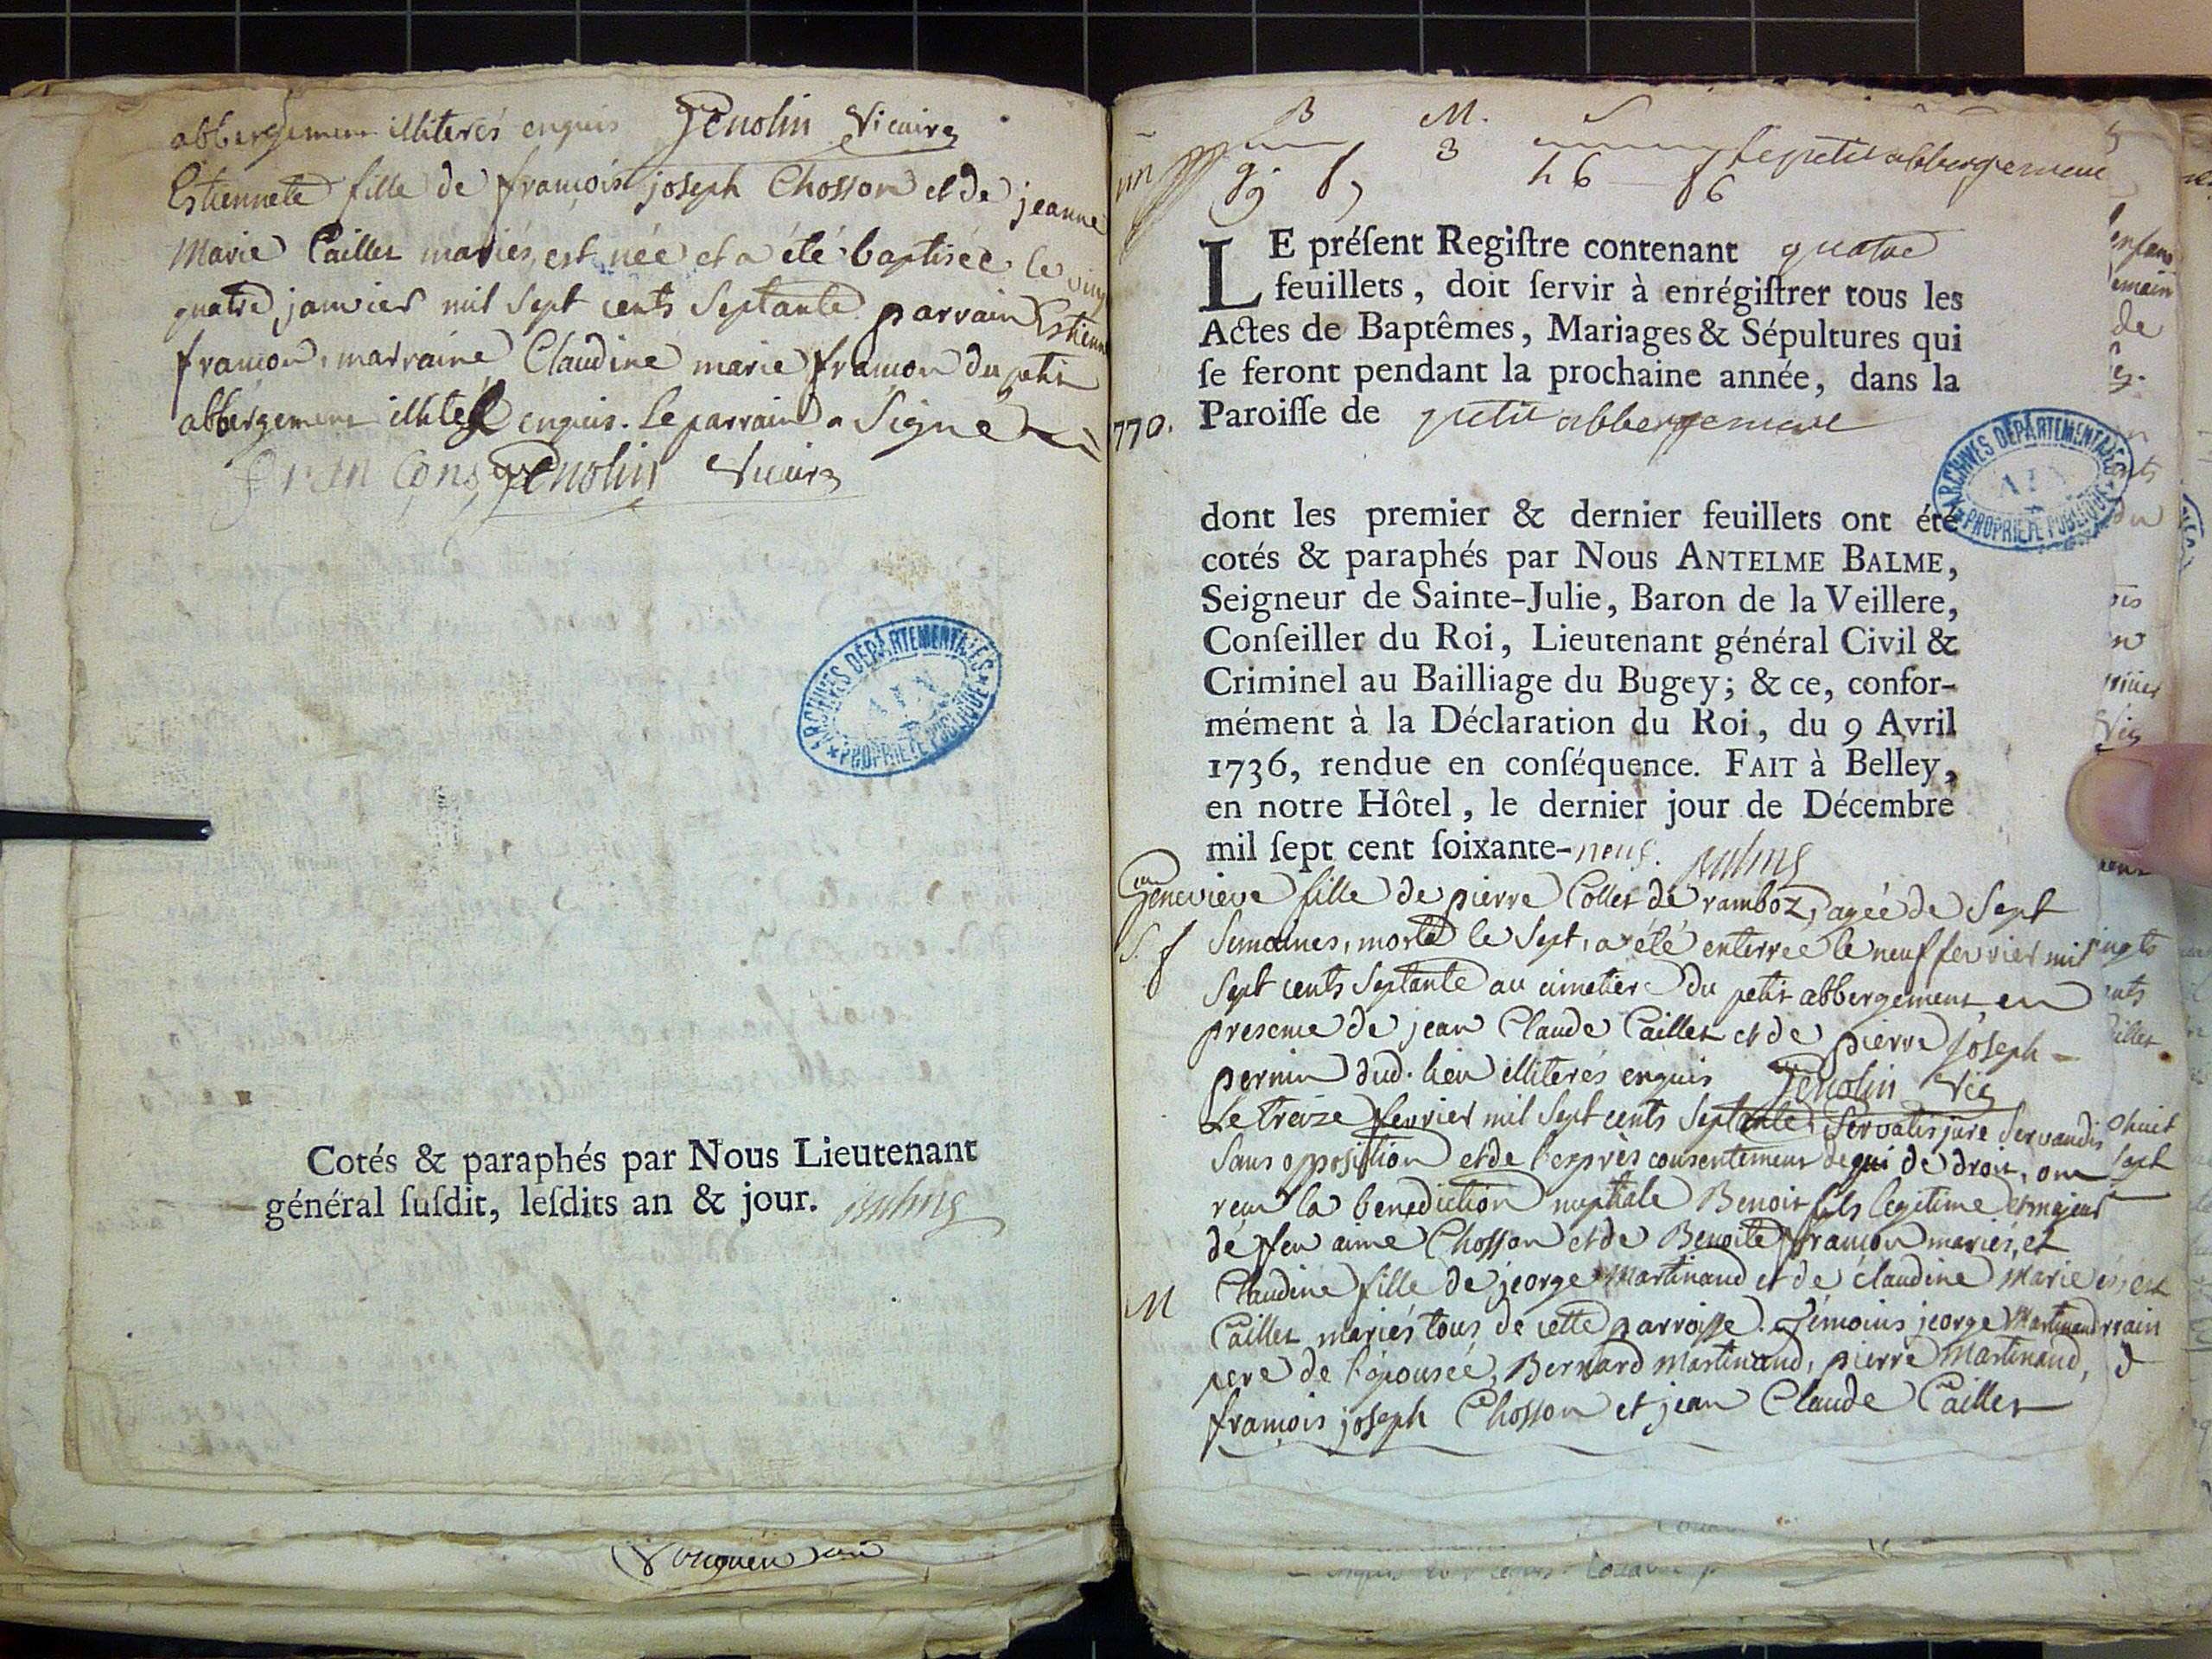 abbergement illiterés enquis Genolin Vicaire
Estiennete fille de françois joseph Chosson et de jeanne
Marie Caillet mariés, est née et a été baptisée le
quatre janvier mil sept cents septante parrain Estienne
françon, marraine Claudine marie françon du petit
abbergement enquis. le parrain a signé
Genolin Vicaire
ARCHIVES DÉPARTEMENTALES
AIN
PROPRIÉTÉ PUBLIQUE
Cotés & paraphés par Nous Lieutenant
général ſuſdit, leſdits an & jour.
B M. S
9 3
le petit abbergement
LE préſent Regiſtre contenant quatre
feuillets, doit ſervir à enrégiſtrer tous les
Actes de Baptêmes, Mariages & Sépultures qui
ſe feront pendant la prochaine année, dans la
770. Paroiſſe de petit abbergement
ARCHIVES DÉPARTEMENTALES
AIN
PROPRIÉTÉ PUBLIQUE
dont les premier & dernier feuillets ont été
cotés & paraphés par Nous ANTELME BALME,
Seigneur de Sainte-Julie, Baron de la Veillere,
Conſeiller du Roi, Lieutenant général Civil &
Criminel au Bailliage du Bugey; & ce, confor-
mément à la Déclaration du Roi, du 9 Avril
1736, rendue en conſéquence. FAIT à Belley,
en notre Hôtel, le dernier jour de Décembre
mil ſept cent ſoixante-neuf.
Genevieve fille de pierre Collet de ramboz, agée de sept
S. f semaines, morte le sept, a été enterreé le neuf fevrier mil
sept cents septante au cimetiere du petit abbergement en
presence de jean Claude Caillet et de pierre joseph
pernin dud. lieu illiterés enquis Genolin Vic
Le treize fevrier mil sept cents septante, servatis jure servandis
sans opposition et de l'exprès consentement de qui de droit, ont
recu la benediction nuptiale Benoit fils legitime et majeur
de feu aimé Chosson et de Benoite françon mariés, et
Claudine fille de jeorge Martinand et de claudine Marie
M Caillet mariés tous de cette parroisse. Témoins jeorge Martinand
pere de l'épouseé, Bernard Martinand, pierre Martinand,
françois joseph Chosson et jean Claude Caillet